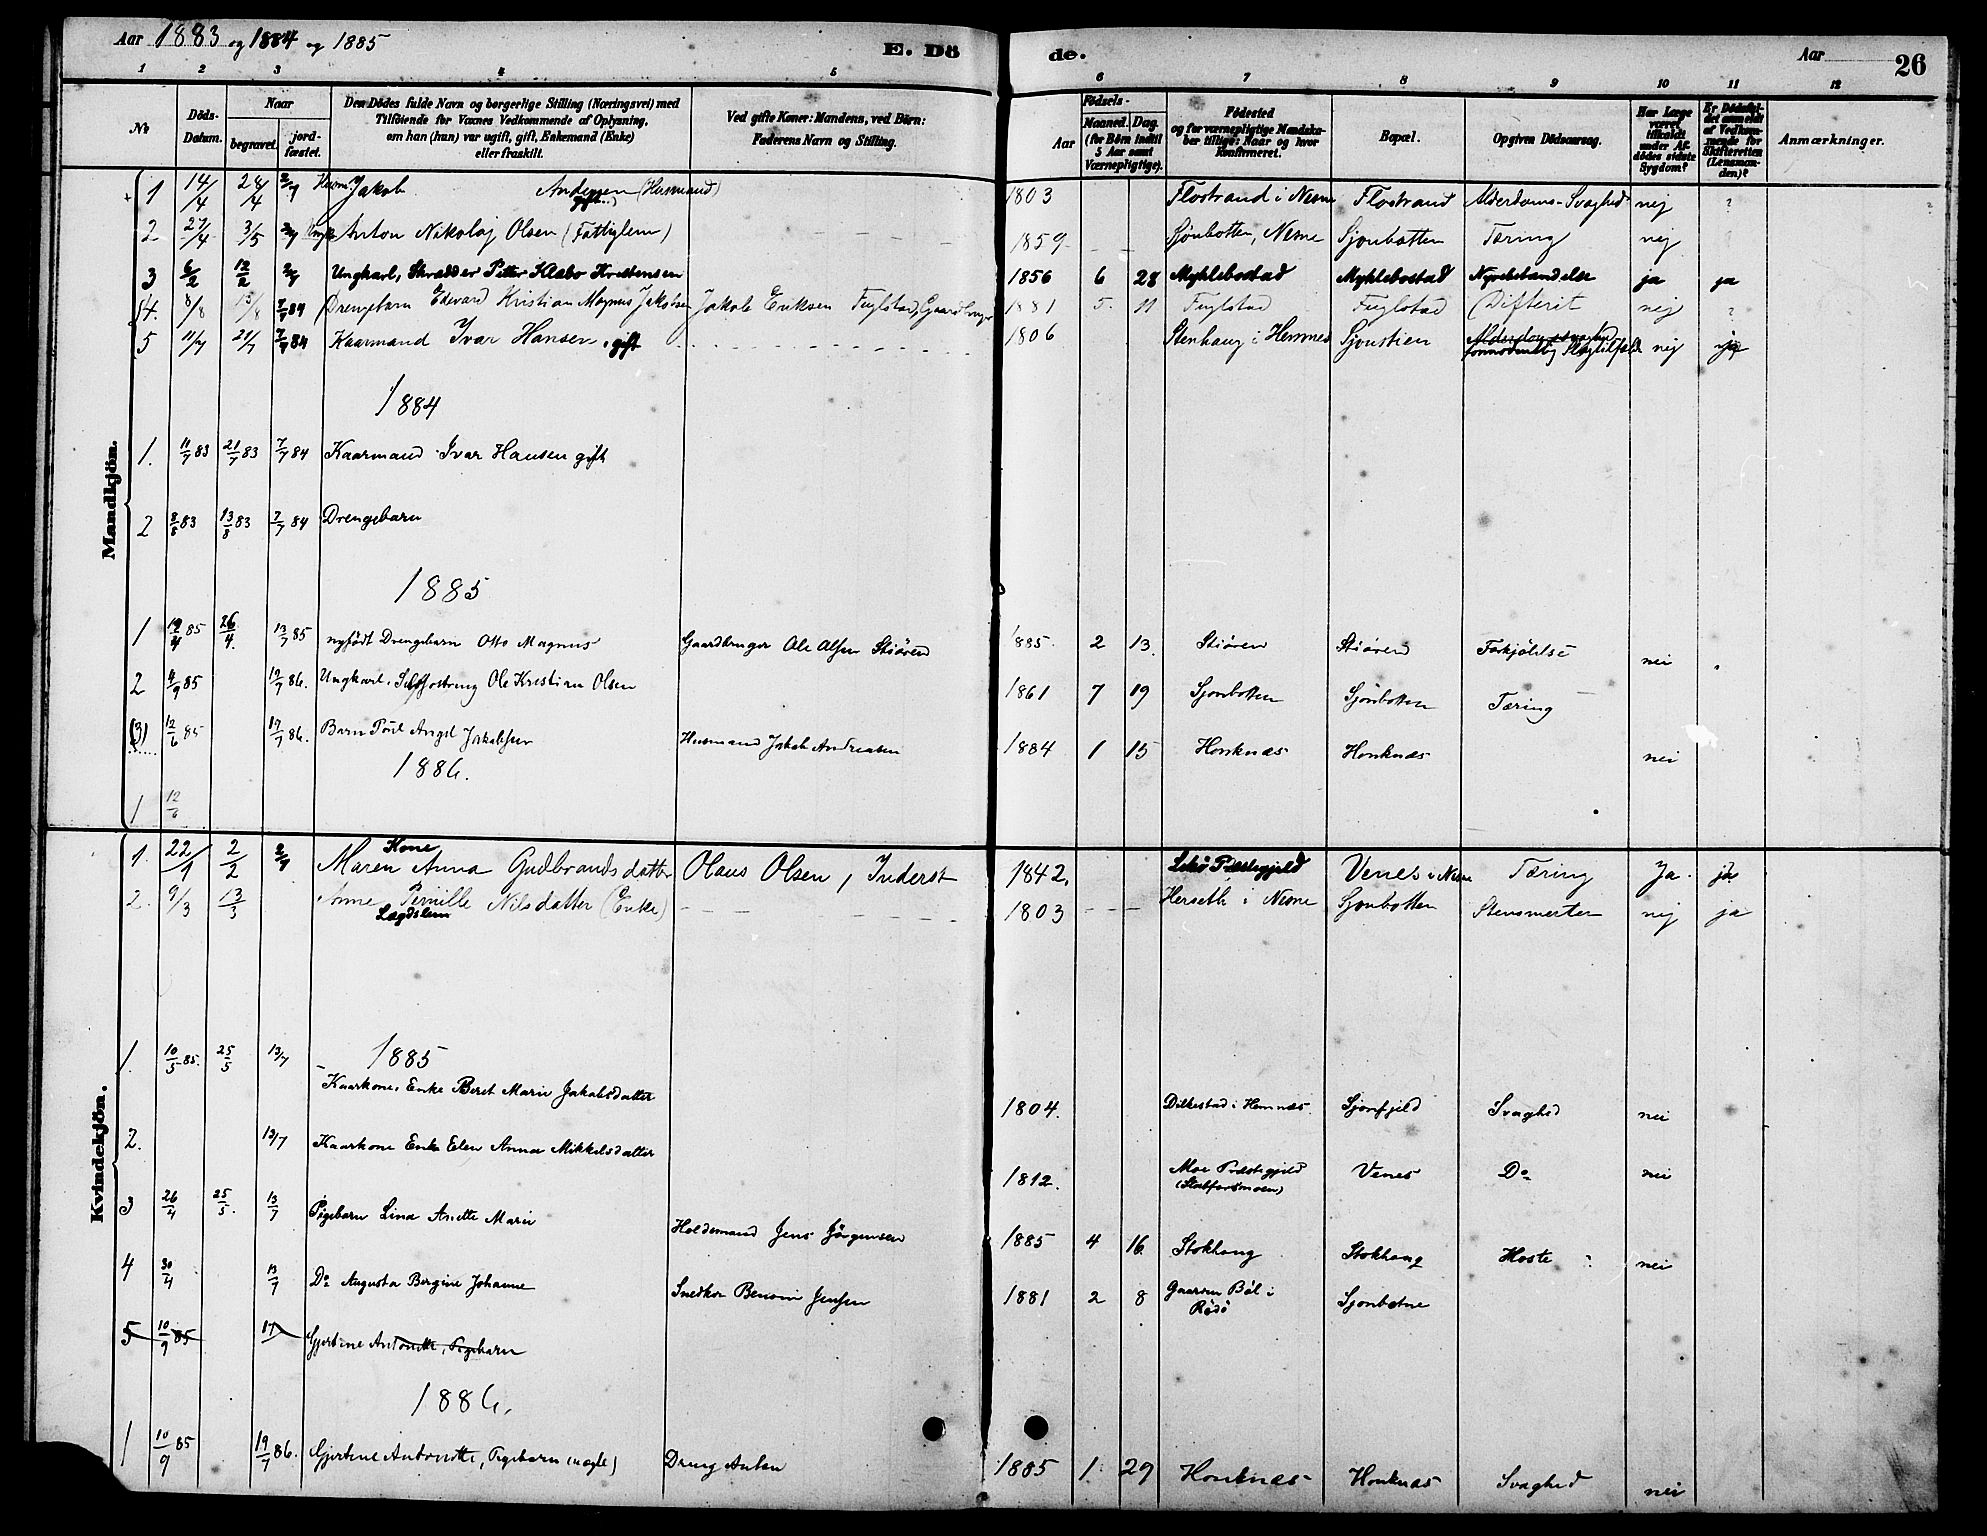 Aar 1883 og 1884 og 1885
E. Dö
de.
Aar
26
1 2 3 4 5 6 7 8 9 10 11 12
No
Döds-Datum.
Naar
begravet.
jordfæstet.
Den Dödes fulde Navn og borgerlige Stilling (Næringsvei) med
Tilföiende for Voxnes Vedkommende af Oplysning,
om han (hun) var ugift, gift, Enkemand (Enke)
eller fraskilt.
Ved gifte Koner: Mandens, ved Börn:
Faderens Navn og Stilling.
Födsels-
Aar
Maaned. Dag.
(for Börn indtil 5 Aar samt Værnepligtige).
Födested
og for værnepligtige Mandskaber tillige: Naar og hvor Konfirmeret.
Bopæl.
Opgiven Dödsaarsag.
Har Læge været tilkaldt under Afdödes sidste Sygdom?
Er Dödsfaldet anmeldt af Vedkommende for Skifteretten (Lensmanden)?
Anmærkninger.
Mandkjön.
1 14/4 24/4 2/9 Jakob Andersen (Husmand) gift 1803 Flostrand i Nesne Flostrand Alderdoms-Svaghed nej ?
2 27/4 3/5 2/9 Ungk. Anton Nikolaj Olsen (Fattiglem) 1859 Sjonbotten, Nesne Sjonbotten Tæring nej ?
3 6/2 12/2 2/9 Ungkarl, Skrædder Petter Klabo Kristensen 1856 6 28 Myklebostad Myklebostad Nyrebetændelse ja ja
4. 8/8 13/8 7/7 84 Drengebarn Edevard Kristian Magnus Jakobsen Jakob Eriksen Fuglstad, Gaardbruger 1881 5. 11 Fuglstad Fuglstad Difterit nej ?
5 11/7 21/7 7/7 84 Kaarmand Ivar Hansen, gift 1806 Stenhaug i Hemnes Sjonstien formodentlig Slagtilfælde nej
1884
1. 11/7 83 21/7 83 7/7 84 Kaarmand Ivar Hansen gift
2 8/8 83 13/8 83 7/7 84 Drengebarn
1885
1 19/4 85 26/4. 13/7 85 nyfödt Drengebarn Otto Magnus Gaardbruger Ole Olsen Stiören 1885. 2 13. Stiören Stiören Forkjölelse nei
2 4/9 85 19/7 86. Ungkarl, Ole Kristian Olsen 1861 7 19 Sjonbotten Sjonbotten Tæring
(3) 12/6 85 19/7 86. Barn Poul Angel Jakobsen Husmand Jakob Andreasen 1884 1 15 Honknæs Honknæs nei
1886.
1 12/6
Kvindekjön.
1. 22/1 2/2 2/9 Kone Maren Anna Gudbrandsdatter Olaus Olsen, Inderst 1842. Lekö Præstegjeld Venes i Nesne Tæring Ja. ja
2. 9/3 13/3 Anne Pernille Nilsdatter (Enke) Lægdslem 1803 Herset i Nesne Sjonbotten Stensmerter nej ja
1885
1. 10/5 85. 25/5 13/7 Kaarkone, Enke Beret Marie Jakobsdatter 1804. Dilkestad i Hemnæs. Sjonfjeld Svaghed nei
2. 13/7 Kaarkone Enke Elen Anna Mikkelsdatter 1812. Moe Præstegjeld (Stabforsmoen) Venes Do nei
3 26/4 25/5. 13/7 Pigebarn Lina Anette Marie Holdemand Jens Jörgensen 1885 4 16 Stokhaug Stokhaug Hoste nei
4 30/4 13/7 Do Augusta Bergine Johanne Snedker Benoni Jensen 1881 2 8 Gaarden Böl i Rödö Sjonbotne
5 10/9 85 17 Gjertine Antonette, Pigebarn
1886.
1 10/9 85 19/7 86. Gjertine Antonette, Pigebarn (uægte) Dreng Anton 1885 1. 29 Honknæs Honknæs Svaghed nei